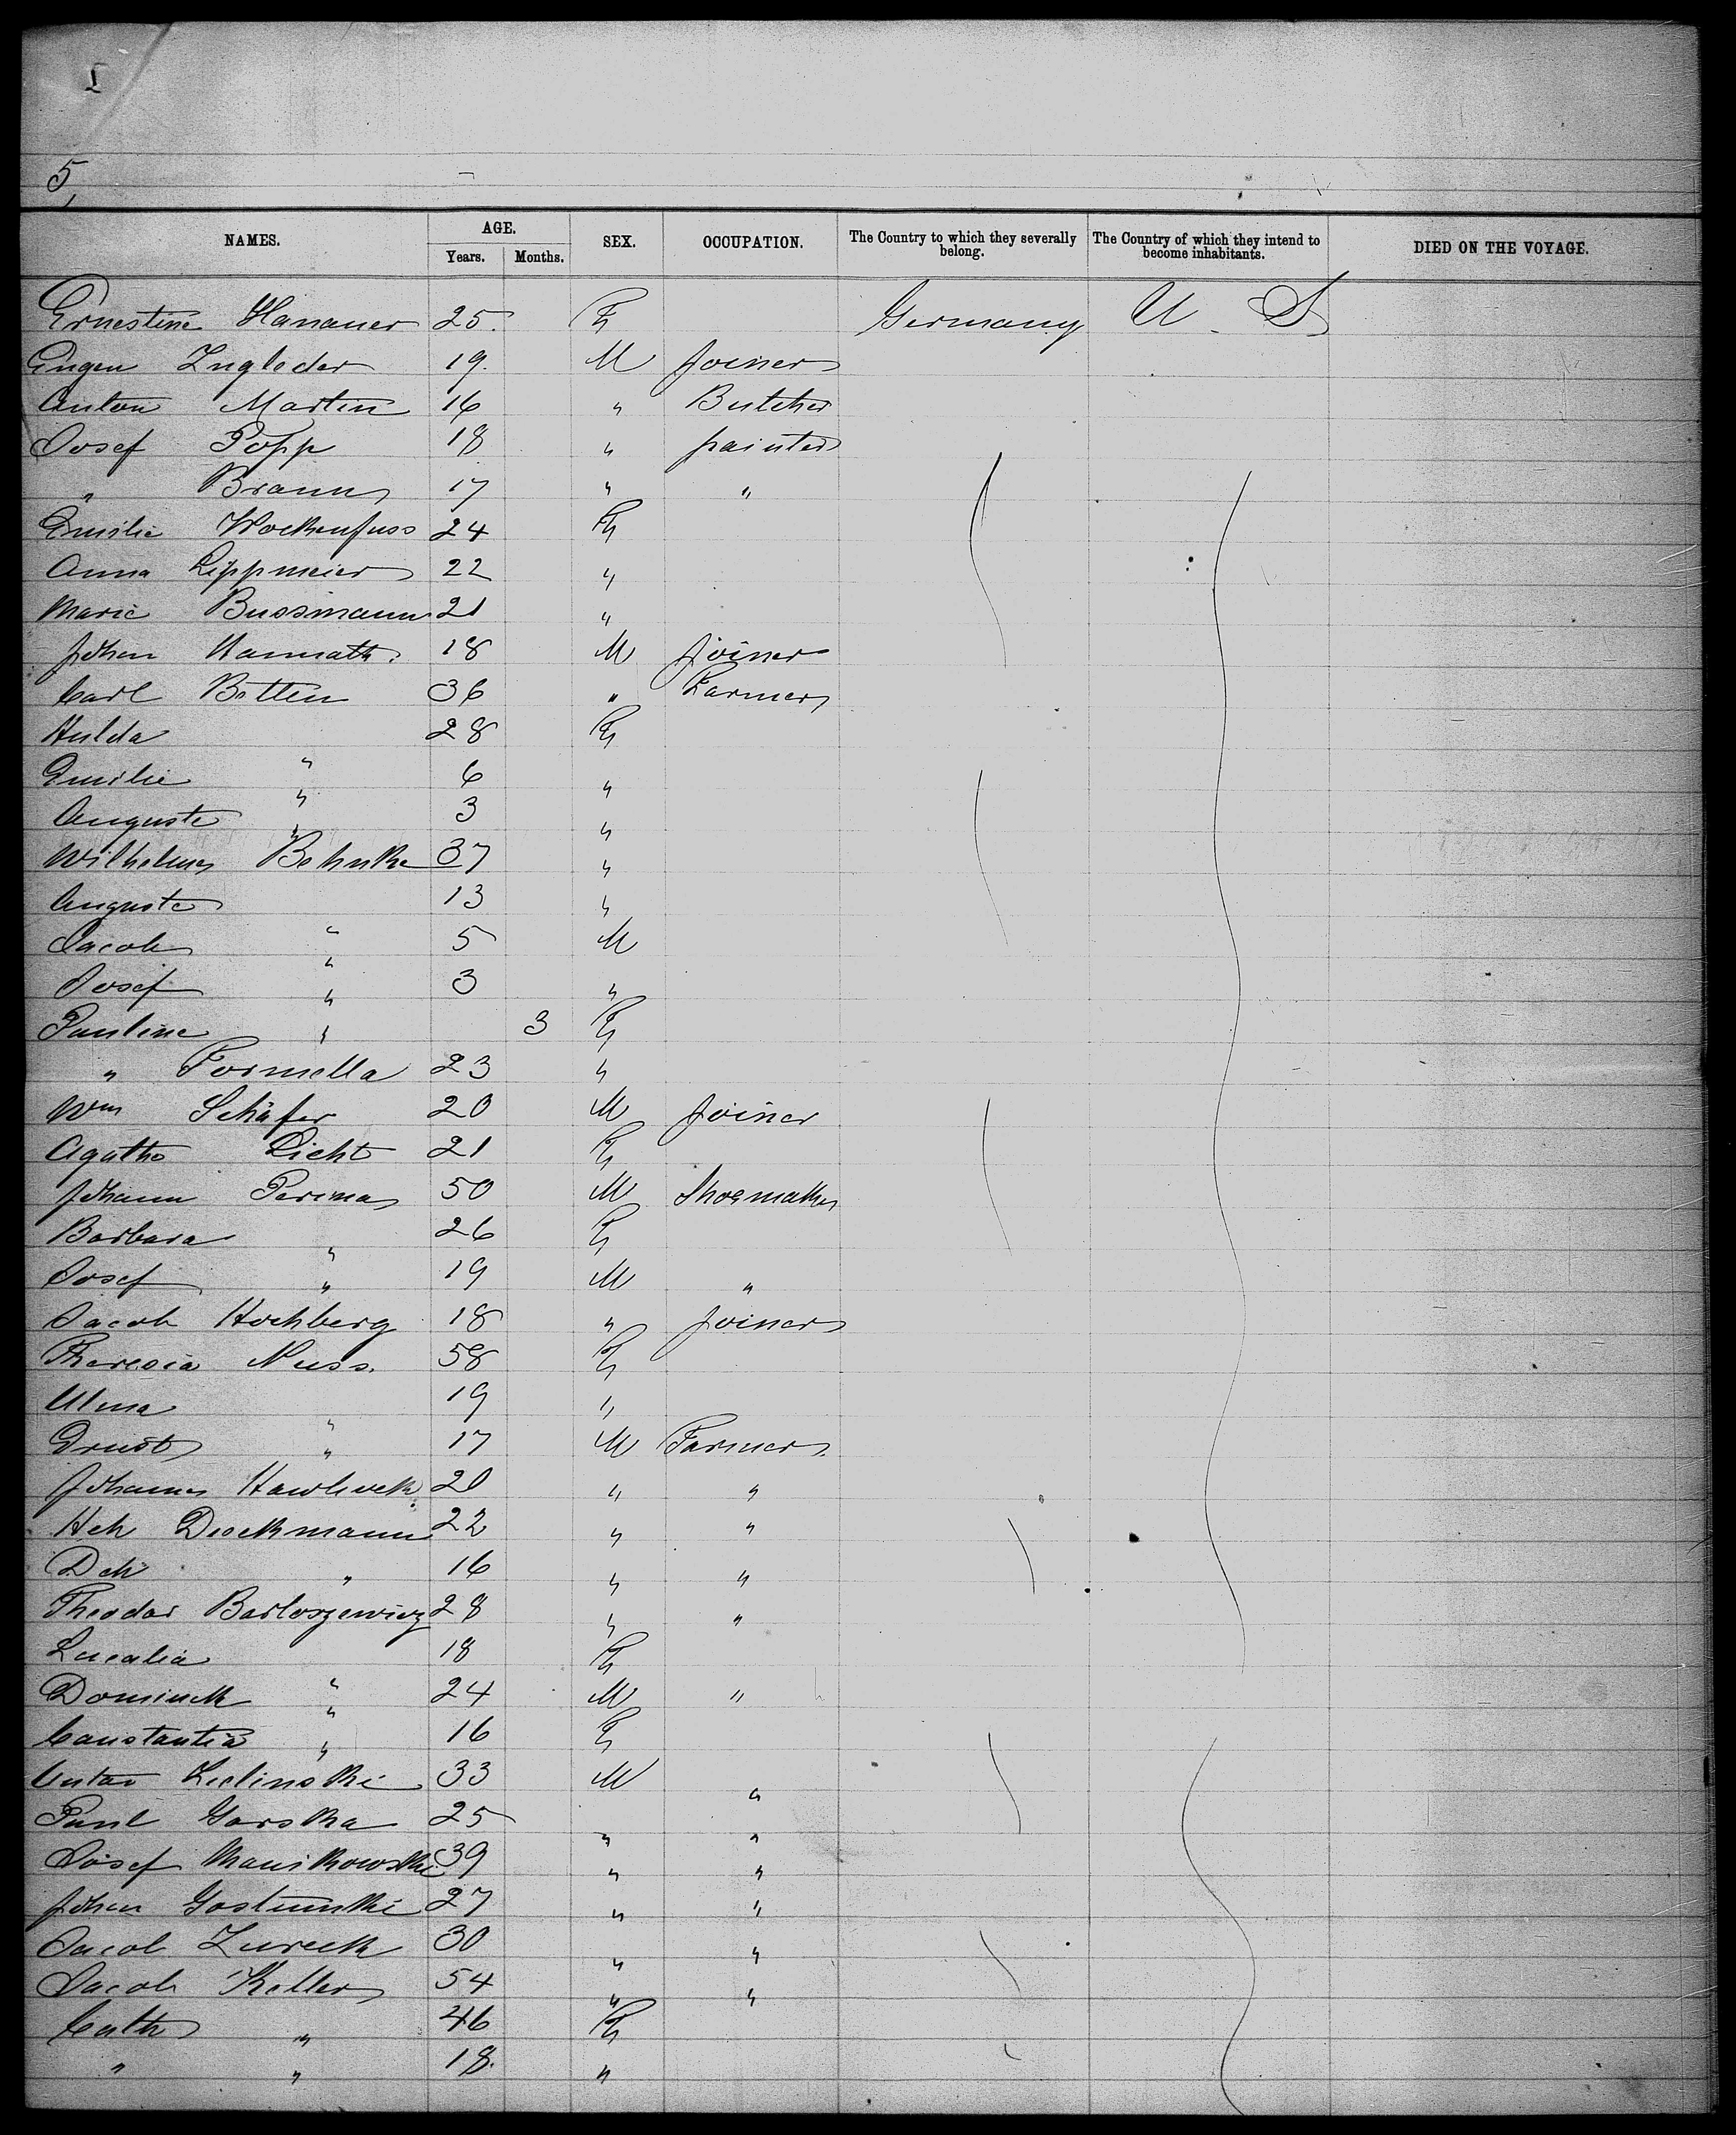 5,
NAMES. AGE. SEX. OCCUPATION. The Country to which they severally belong. The Country of which they intend to become inhabitants. DIED ON THE VOYAGE.
Years. Months.
Ernestine Hanauer 25. F Germany U. S
Eugen Zugleder 19. M Joiner
Anton Martin 16 " Butcher
Josef Popp 18 " painter
" Braun 17 " "
Emilie Wockenfuss 24 F
Anna Lippmeier 22 "
Marie Bussmann 21 "
Johan Hannrath. 18 M Joiner
Carl Betten 36 " Farmer
Hulda " 28 F
Emilie " 6 "
Auguste " 3 "
Wilhelm Behnke 37 "
Auguste " 13 "
Jacob " 5 M
Josef " 3 "
Pauline " 3 F
" Formella 23 "
Wm Schäfer 20 M Joiner
Agathe Licht 21 F
Johann Perina 50 M Shoemaker
Barbara " 26 F
Josef " 19 M "
Jacob Hochberg 18 " Joiner
Theresia Nuss. 58 F
Alma " 19 "
Ernst " 17 M Farmer
Johann 20 " "
Hch Dieckmann 22 " "
Dch " 16 " "
Theodor Bartoszewicz 28 " "
18 F
Dominck " 24 M "
Constantia " 16 F
33 M "
Paul Gorska 25 " "
Josef Manikowski 39 " "
Johan 27 " "
Jacob Zureck 30 " "
Jacob Keller 54 " "
Cath " 46 F
" " 18. "